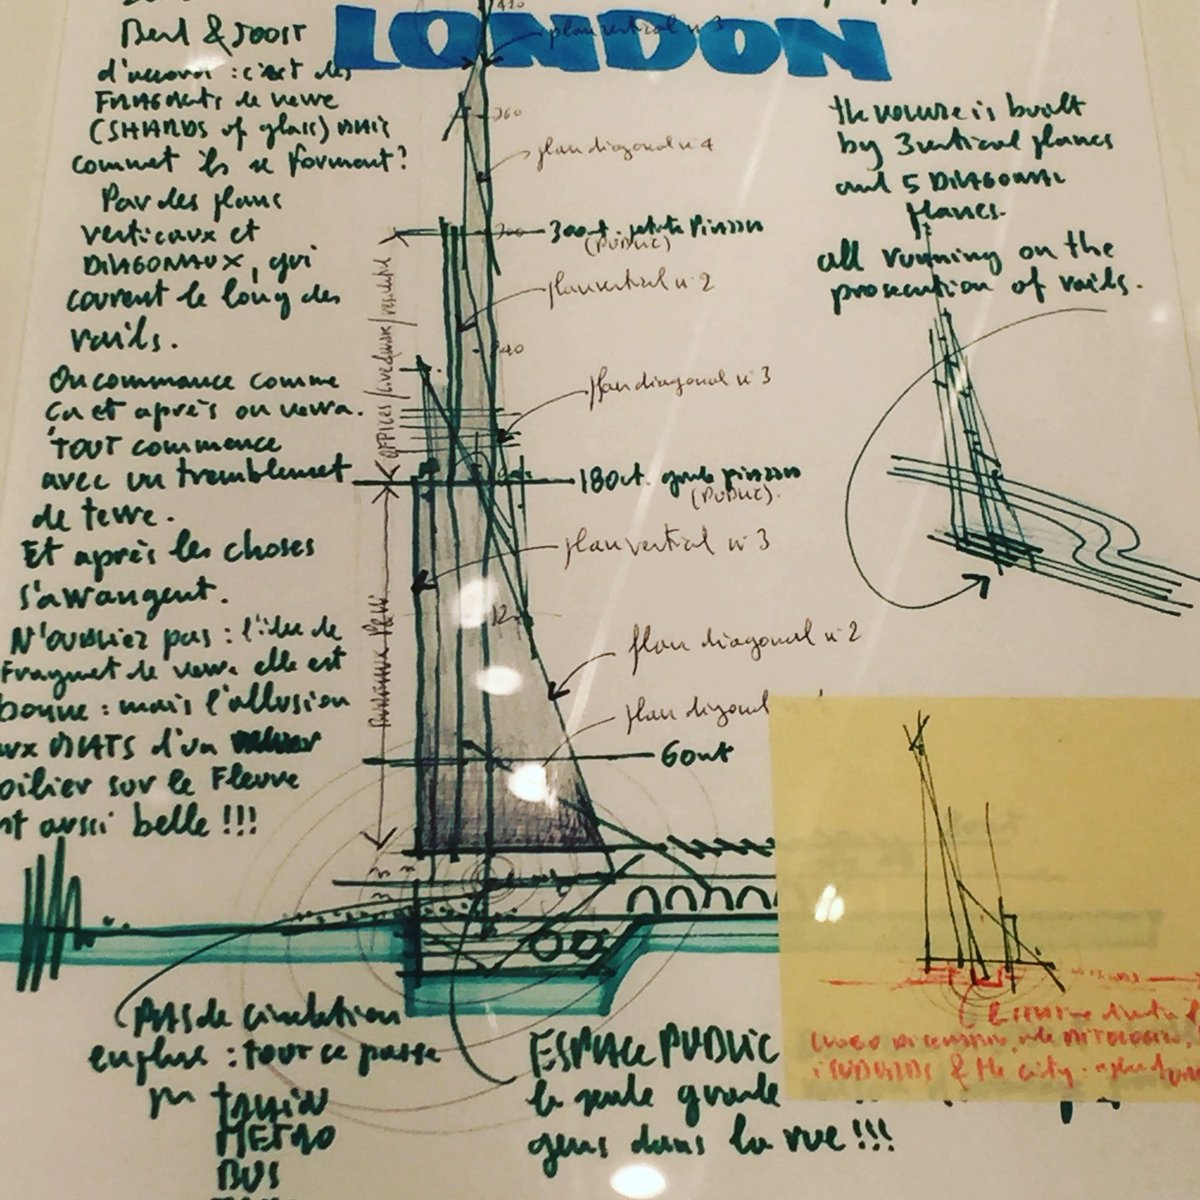 LONDON
Bend & Joost
d'accord : c'est des
FRAGMENTS de verre
(SHARDS of glass) MAIS
comment ils se forment?
Par des plans
verticaux et
DIAGONAUX, qui
courent le long des
rails.
On commance comme
ça et après on verra.
TOUT commence
avec un tremblement
de terre.
Et après les choses
s'arrangent.
N'oubliez pas : l'idée de
Fragment de verre elle est
bonne : mais l'allusion
aux MATS d'un
voilier sur le Fleuve
est aussi belle !!!
420
plan vertical n°3
360
plan diagonal n°4
300 piazza
(PUBLIC)
plan vertical n°2
240
plan diagonal n°3
OFFICES/
180 piazza
(PUBLIC).
plan vertical n°3
12
plan diagonal n°2
plan diagonal
60mt
the volume is built
by 3 vertical planes
and 5 DIAGONAL
planes.
all running on the
prosecution of rails.
PAS de circulation
en plus : tout se passe
TRAIN
METRO
BUS
ESPACE PUBLIC
la seule grande
gens dans la rue !!!
& the city